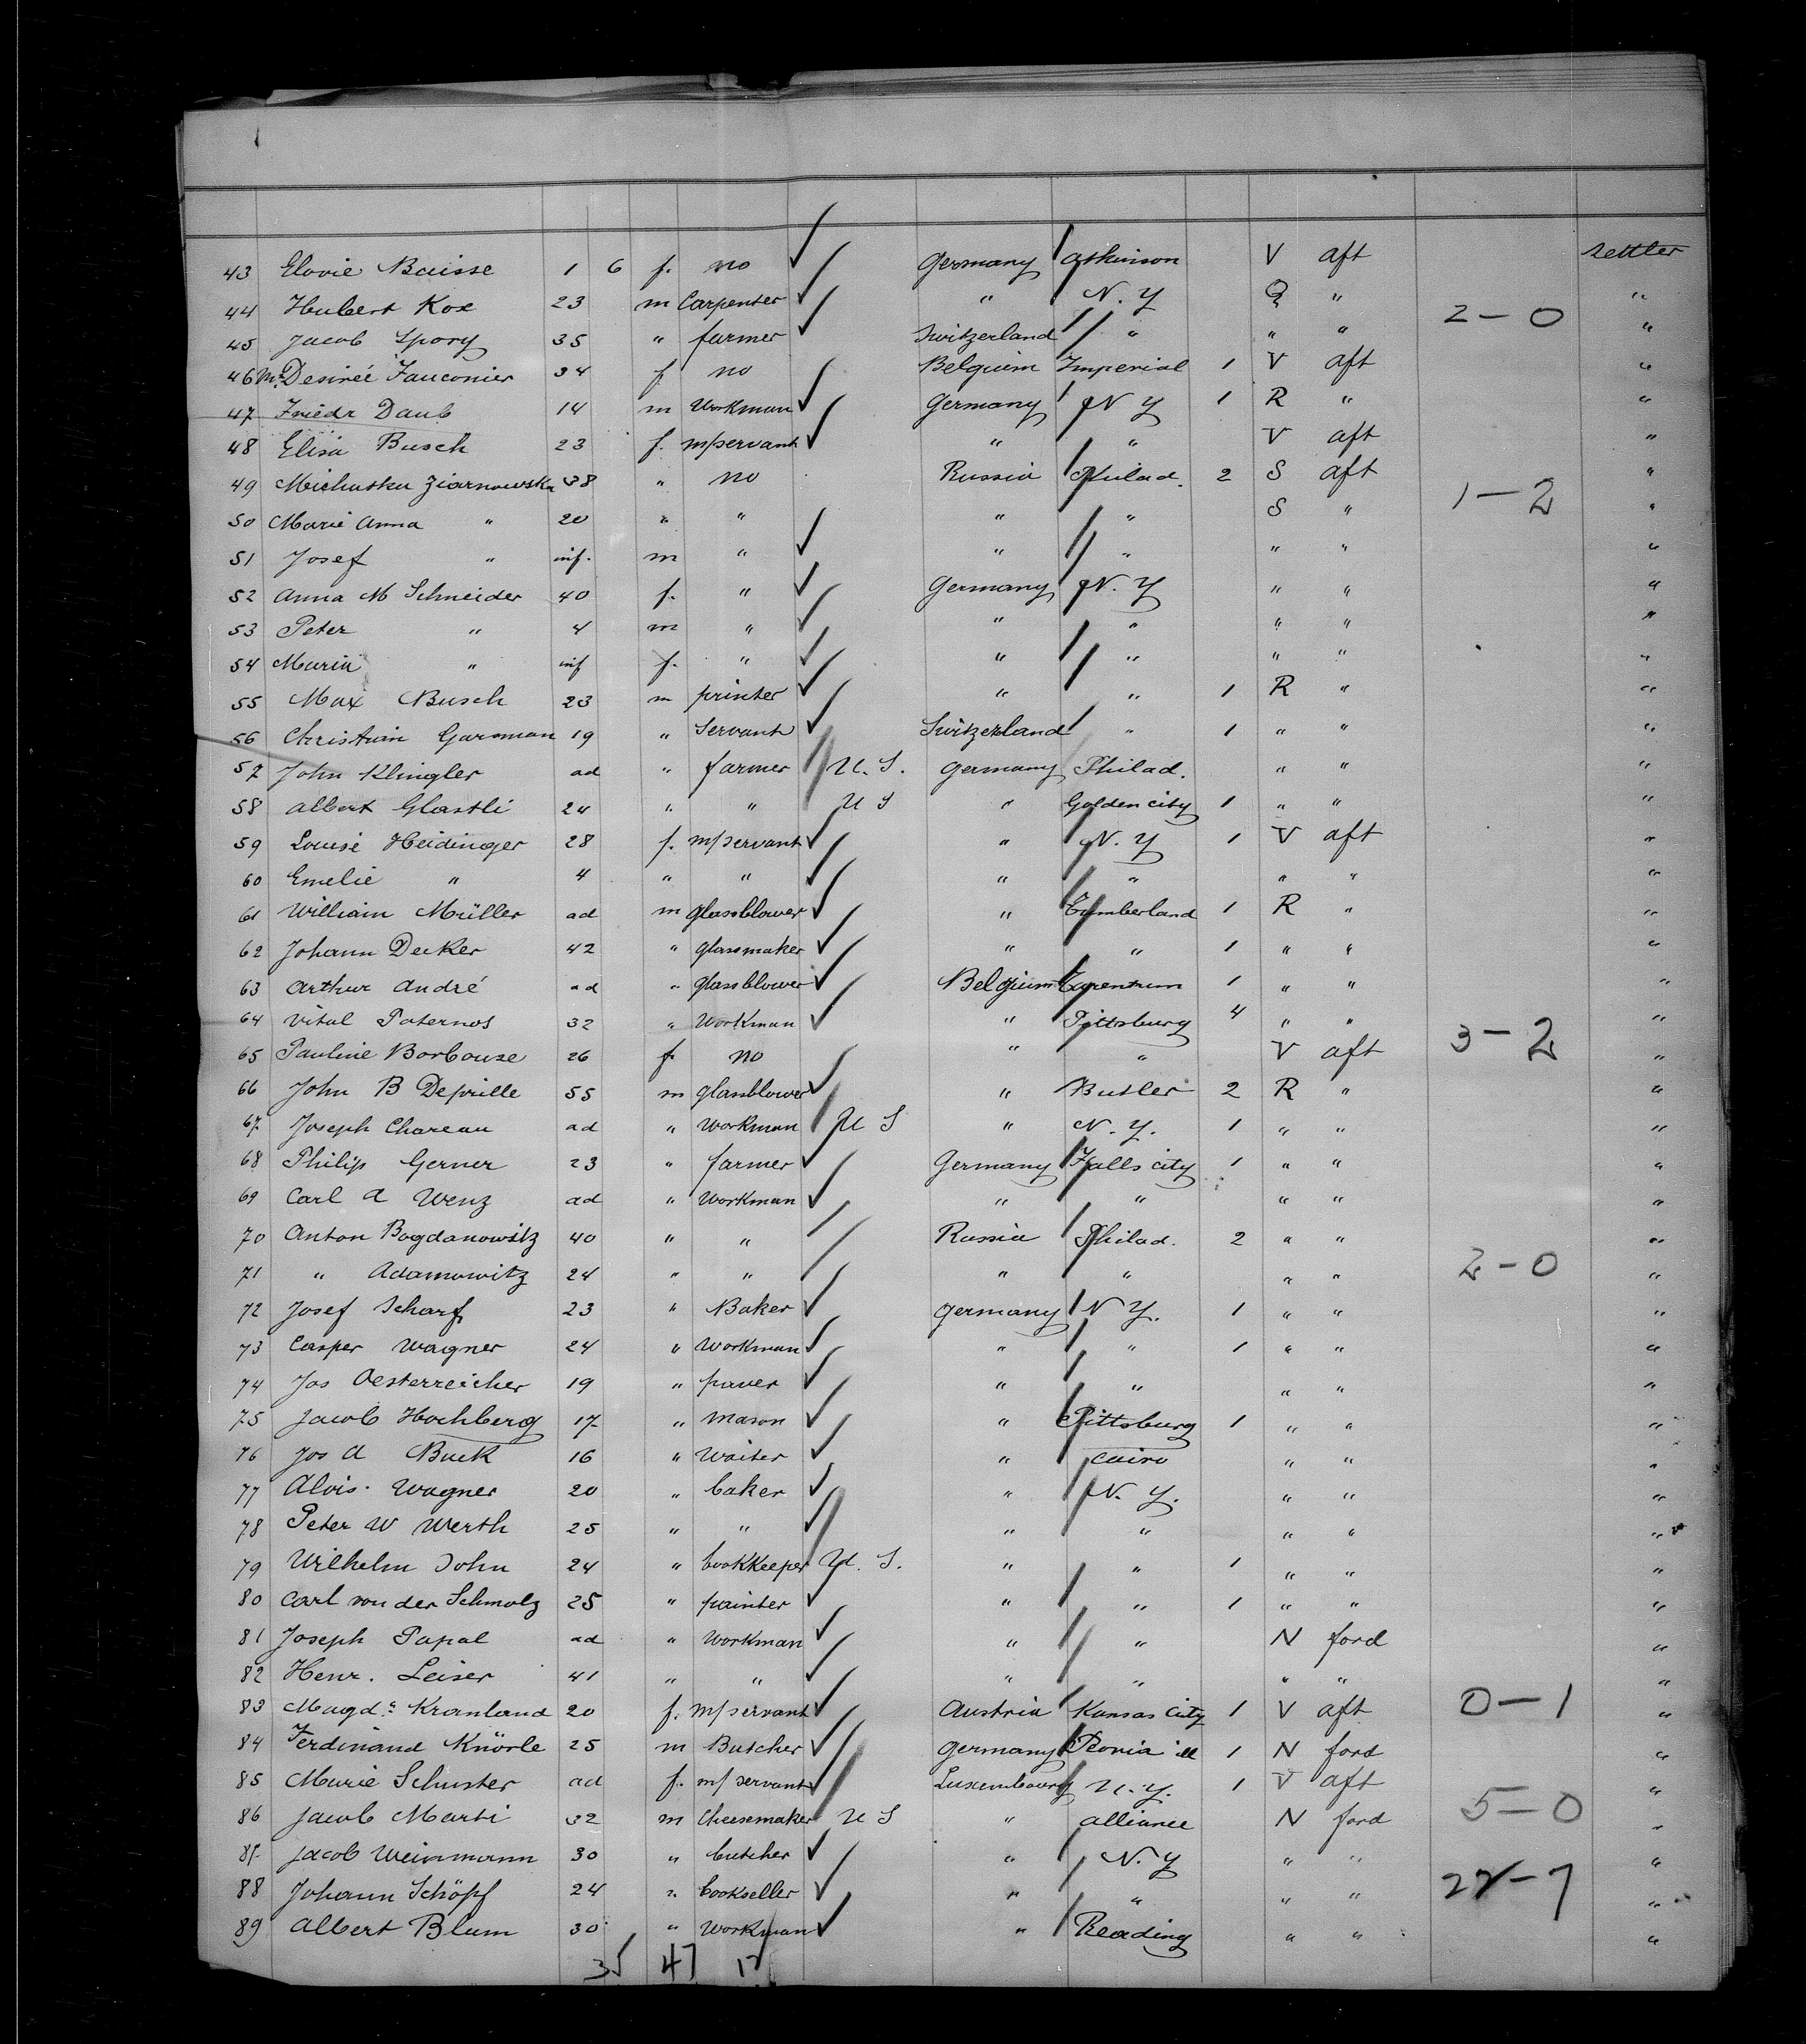 43 Elovie Buisse 1 6 f. no Germany Atkinson V aft settler
44 Hubert Kox 23 m Carpenter " N. Y Q " "
2 - 0
45 Jacob Spory 35 " farmer Switzerland " " " "
46 Desireé Fauconier 34 f no Belguim Imperial 1 V aft "
47 Friedr Daub 14 m Workman Germany N Y 1 R " "
48 Elisa Busch 23 f. m/servant " " V aft "
49 Michaska Ziarnowska 38 " no Russia Philad. 2 S aft "
1 - 2
50 Marie Anna " 20 " " " " S " "
51 Josef " inf. m " " " " " "
52 Anna M Schneider 40 f. " Germany N. Y " " "
53 Peter " 4 m " " " " " "
54 Maria " inf f. " " " " " "
55 Max Busch 23 m printer " " 1 R " "
56 Christian Garsman 19 " Servant Switzerland " 1 " " "
57 John Klingler ad " farmer U. S. Germany Philad. " " "
58 Albert Glastli 24 " " U S " Golden city 1 " " "
59 Louise Heidinger 28 f. m/servant " N. Y 1 V aft "
60 Emelie " 4 " " " " " " "
61 William Müller ad m glassblower " Cumberland 1 R " "
62 Johann Decker 42 " glassmaker " " 1 " " "
63 Arthur André ad " glassblower Belgium Tarentum 1 " " "
64 Vital Paternos 32 " Workman " Pittsburg 4 " " "
3 - 2
65 Pauline Borbouse 26 f. no " " V aft "
66 John B Deprille 55 m glassblower " Butler 2 R " "
67 Joseph Chareau ad " Workman U S " N. Y. 1 " " "
68 Philip Gerner 23 " farmer Germany Falls city 1 " " "
69 Carl A Wenz ad " Workman " " " " "
70 Anton Bogdanowitz 40 " " Russia Philad. 2 " " "
2 - 0
71 " Adamowitz 24 " " " " " " "
72 Josef Scharf 23 " Baker Germany N Y. 1 " " "
73 Casper Wagner 24 " Workman " " 1 " " "
74 Jos Oesterreicher 19 " paver " " " " "
75 Jacob Hochberg 17 " mason " Pittsburg 1 " " "
76 Jos A Buck 16 " Waiter " Cairo " " "
77 Alois. Wagner 20 " baker " N. Y. " " "
78 Peter W Werth 25 " " " " " " "
79 Wilhelm John 24 " bookkeeper U. S. " " 1 " " "
80 Carl von der Schmolz 25 " painter " " 1 " " "
81 Joseph Papal ad " Workman " " N ford "
82 Henr. Leiser 41 " " " " " " "
83 Magd.a Kranland 20 f. m/servant Austria Kansas City 1 V aft "
0 - 1
84 Ferdinand Knörle 25 m Butcher Germany Peoria ill 1 N ford "
85 Marie Schuster ad f. m/servant Luxembourg N. Y. 1 V aft "
5 - 0
86 Jacob Marti 32 m Cheesemaker U S " Alliance N ford "
87 Jacob Weinmann 30 " butcher " N. Y " " "
88 Johann Schöpf 24 " bookseller " " " " "
22 - 7
89 Albert Blum 30 " Workman " Reading " " "
35 47 12